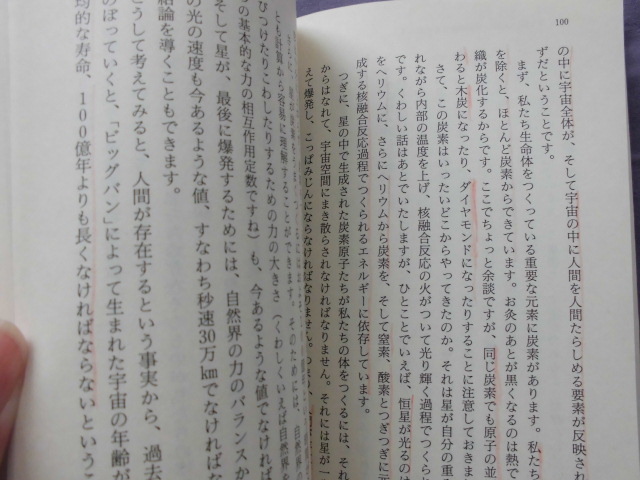 100
の中に宇宙全体が、そして宇宙の中に人間を人間たらしめる要素が反映され
ずだということです。
まず、私たち生命体をつくっている重要な元素に炭素があります。私たち
を除くと、ほとんど炭素からできています。お灸のあとが黒くなるのは熱で
織が炭化するからです。ここでちょっと余談ですが、同じ炭素でも原子の並
わると木炭になったり、ダイヤモンドになったりすることに注意しておきま
さて、この炭素はいったいどこからやってきたのか。それは星が自分の重
れながら内部の温度を上げ、核融合反応の火がついて光り輝く過程でつくられ
です。くわしい話はあとでいたしますが、ひとことでいえば、恒星が光るのは
をヘリウムに、さらにヘリウムから炭素を、そして窒素、酸素とつぎつぎに元
成する核融合反応過程でつくられるエネルギーに依存しています。
つぎに、星の中で生成された炭素原子たちが私たちの体をつくるには、それ
からはなれて、宇宙空間にまき散らされなければなりません。それには星が一
えて爆発し、こっぱみじんにならなければなりません。つまり、
とも計算から容易に理解することができます。そのためには、
びつけたりこわしたりするための力の大きさ（くわしくいえば自然界を
の基本的な力の相互作用定数ですね）も、今あるような値でなければ
そして星が、最後に爆発するためには、自然界の力のバランスか
の光の速度も今あるような値、すなわち秒速30万㎞でなければな
結論を導くこともできます。
こうして考えてみると、人間が存在するという事実から、過去
のぼっていくと、「ビッグバン」によって生まれた宇宙の年齢が
均的な寿命、100億年よりも長くなければならないというこ